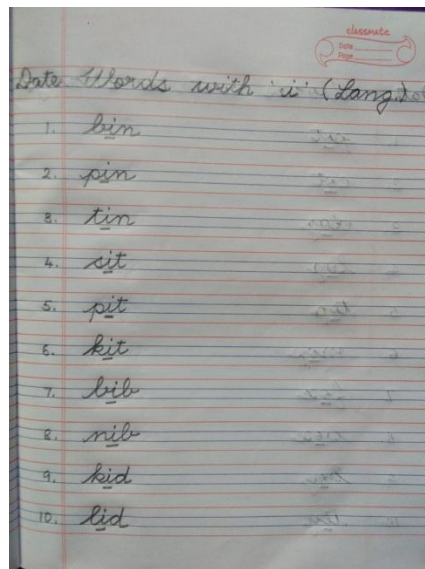 classmate
Date
Page
Date Words with 'i' (Lang.)
1. bin
2. pin
3. tin
4. sit
5. pit
6. kit
7. bib
8. nib
9. kid
10. lid